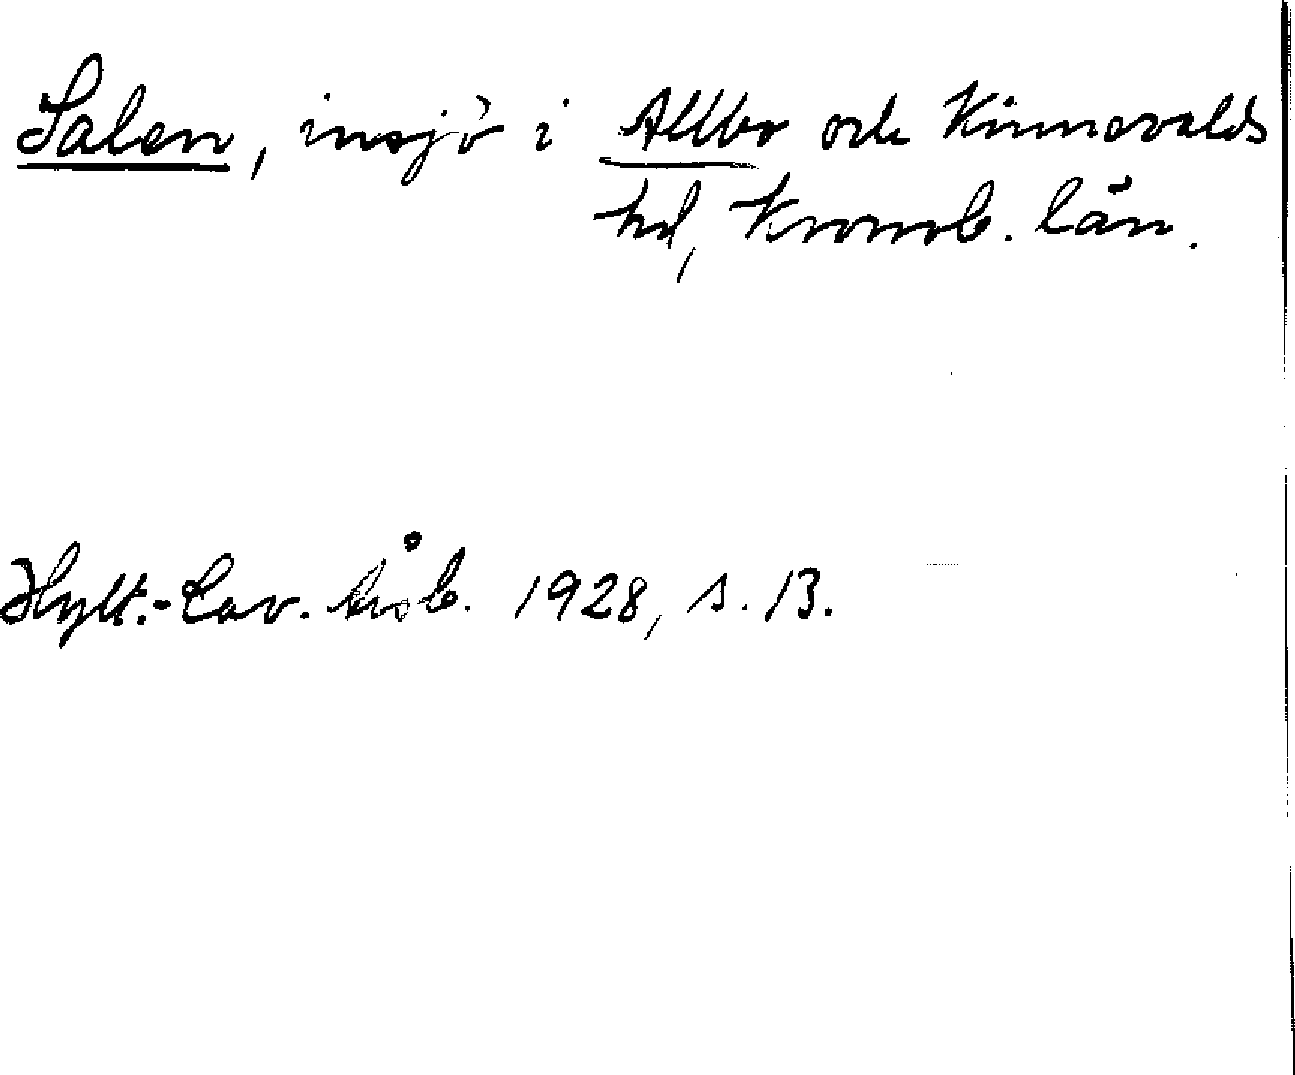 Salen, insjö i Allbo och Kinnevalds
hd, Kronob. län.
Hylt.-Cav. årsb. 1928, s. 13.